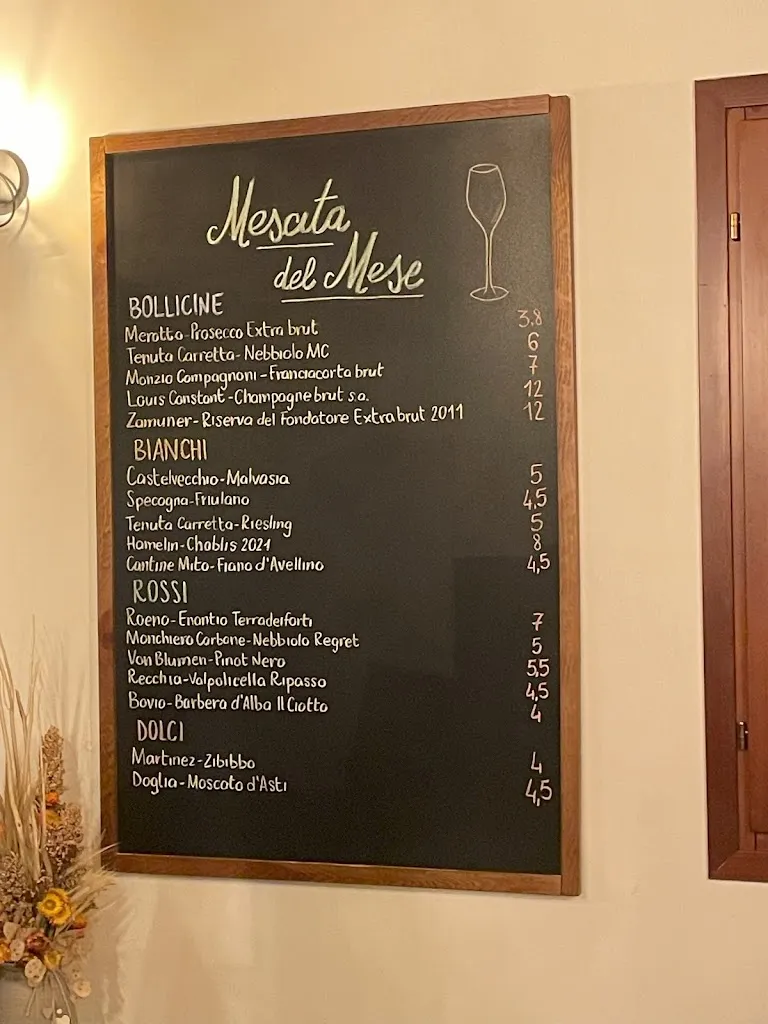 Mescita
del Mese
BOLLICINE
Merotto-Prosecco Extra brut 3.8
Tenuta Carretta-Nebbiolo MC 6
Monzio Compagnoni-Franciacorta brut 7
Louis Constant-Champagne brut s.a. 12
Zamuner-Riserva del Fondatore Extra brut 2011 12
BIANCHI
Castelvecchio-Malvasia 5
Specogna-Friulano 4,5
Tenuta Carretta-Riesling 5
Hamelin-Chablis 2021 8
Cantine Mito-Fiano d'Avellino 4,5
ROSSI
Roeno-Enantio Terradeiforti 7
Monchiero Carbone-Nebbiolo Regret 5
Von Blumen-Pinot Nero 5,5
Recchia-Valpolicella Ripasso 4,5
Bovio-Barbera d'Alba Il Ciotto 4
DOLCI
Martinez-Zibibbo 4
Doglia-Moscato d'Asti 4,5